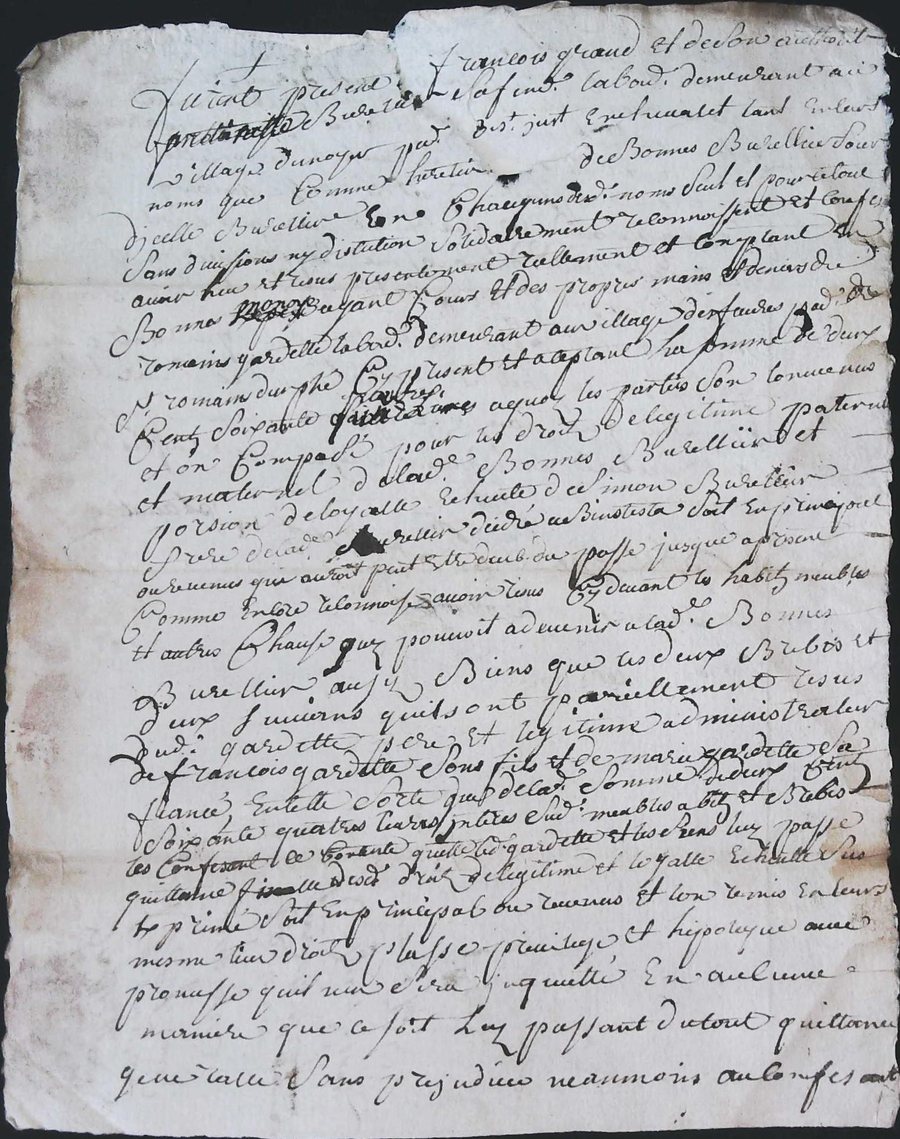 furent present françois grand et de son authorité
Burellier sa fem.e labou.r demeurant au
village du noyer pa.r de st just En chevalet tant En leurs
noms que Comme heretier de Bonnes Burellier soeur
djcelle Burelliere En Chacquns desd. noms seul et pour le tout
sans divisions ny distution solidairement reconnoissent et Confes
avoir heu et resus presentement reellement et Comptant En
Bonnes ayant Cours et des propres mains et deniers de
romains gardette labou.r demeurant au village pad. de
st romain durphé Cy present et aceptant la somme de deux
Centz soixante quatres aquoy les partis son convenus
et on Composé pour les droitz de legitime paternel
et maternel de lad.e Bonnes Burelliere et
porsion de loyalle Echeute de Simon Burellier
frere de lad.e Burellier decedé soit En principal
ou revenus qui auroit peut Estre deub du passé jusque a present
Comme Encore reconnoisse avoir resus Cy devant les habitz meubles
et autres Chause quy pouvoit advenir a lad.e Bonnes
Burellier ausy Biens que les deux Brebis et
deux suiverns quils ont pareillement resus
dud. gardette pere et legitime administrateur
de françois gardette sons fils et de marie gardette sa
fiancé En telle sorte que de lad. somme de deux Cent
soixante quatres livres jnteres sud. meubles abit et Brebis
les Confesant ce Contente quelle led. gardette et les siens luy passe
quittance finalle desd. droitz de legitime et loyalle Echeutte sus
Exprimé soit En principal ou revenus et lon remis En leurs
mesme lieu droitz plasse privilege et hipoteque avec
promesse quil nen sera jnquietté En aulcune
maniere que ce soit luy passant du tout quittance
generalle sans prejudice neanmoins au Confesant